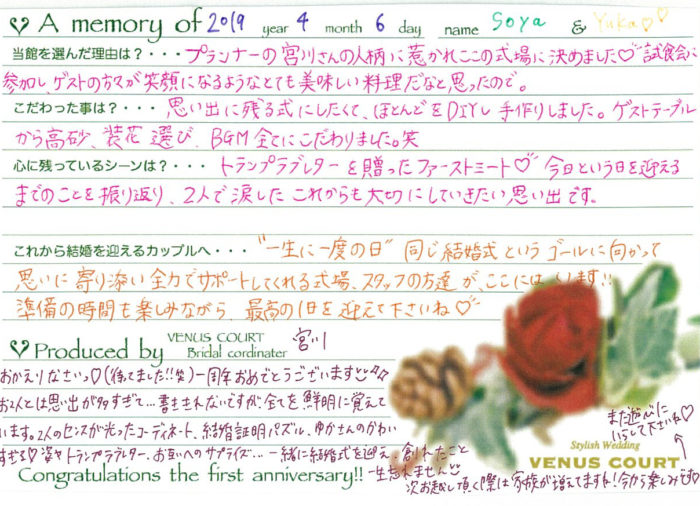 A memory of 2019 year 4 month 6 day name Soya & Yuka♡♡
当館を選んだ理由は？・・・プランナーの宮川さんの人柄に惹かれここの式場に決めました♡試食会に
参加し、ゲストの方々が笑顔になるようなとても美味しい料理だなと思ったので。
こだわった事は？・・・思い出に残る式にしたくて、ほとんどをDIYし手作りしました。ゲストテーブル
から高砂、装花選び、BGM全てにこだわりました。笑
心に残っているシーンは？・・・トランプラブレターを贈ったファーストミート♡今日という日を迎える
までのことを振り返り、2人で涙したこれからも大切にしていきたい思い出です。
これから結婚を迎えるカップルへ・・・"一生に一度の日"同じ結婚式というゴールに向かって
思いに寄り添い全力でサポートしてくれる式場、スタッフの方達が、ここにはいます!!
準備の時間も楽しみながら、最高の1日を迎えて下さいね♡
Produced by VENUS COURT
Bridal cordinater 宮川
おかえりなさいっ♡(待ってました!!笑)一周年おめでとうございます
お2人とは思い出が多すぎて…書ききれないですが、全てを鮮明に覚えて
います。2人のセンスが光ったコーディネート、結婚証明パズル、ゆかさんのかわい
すぎる♡姿やトランプラブレター、お互いへのサプライズ…一緒に結婚式を迎え、創れたこと
一生忘れません
次お越し頂く際は家族が増えてますね!今から楽しみです
また遊びに
いらして下さいね♡
Stylish Wedding
VENUS COURT
Congratulations the first anniversary!!